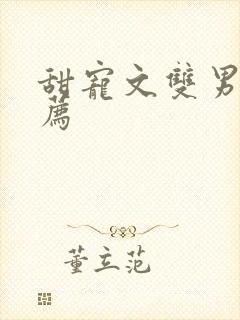 甜寵文雙男
薦
董立范